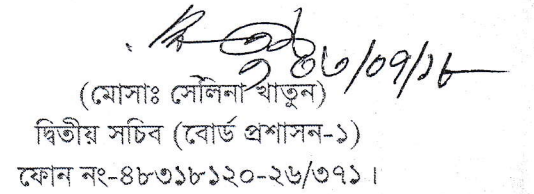 ০৩/০৭/১৮
(মোসাঃ সেলিনা খাতুন)
দ্বিতীয় সচিব (বোর্ড প্রশাসন-১)
ফোন নং-৪৮৩১৮১২০-২৬/৩৭১।